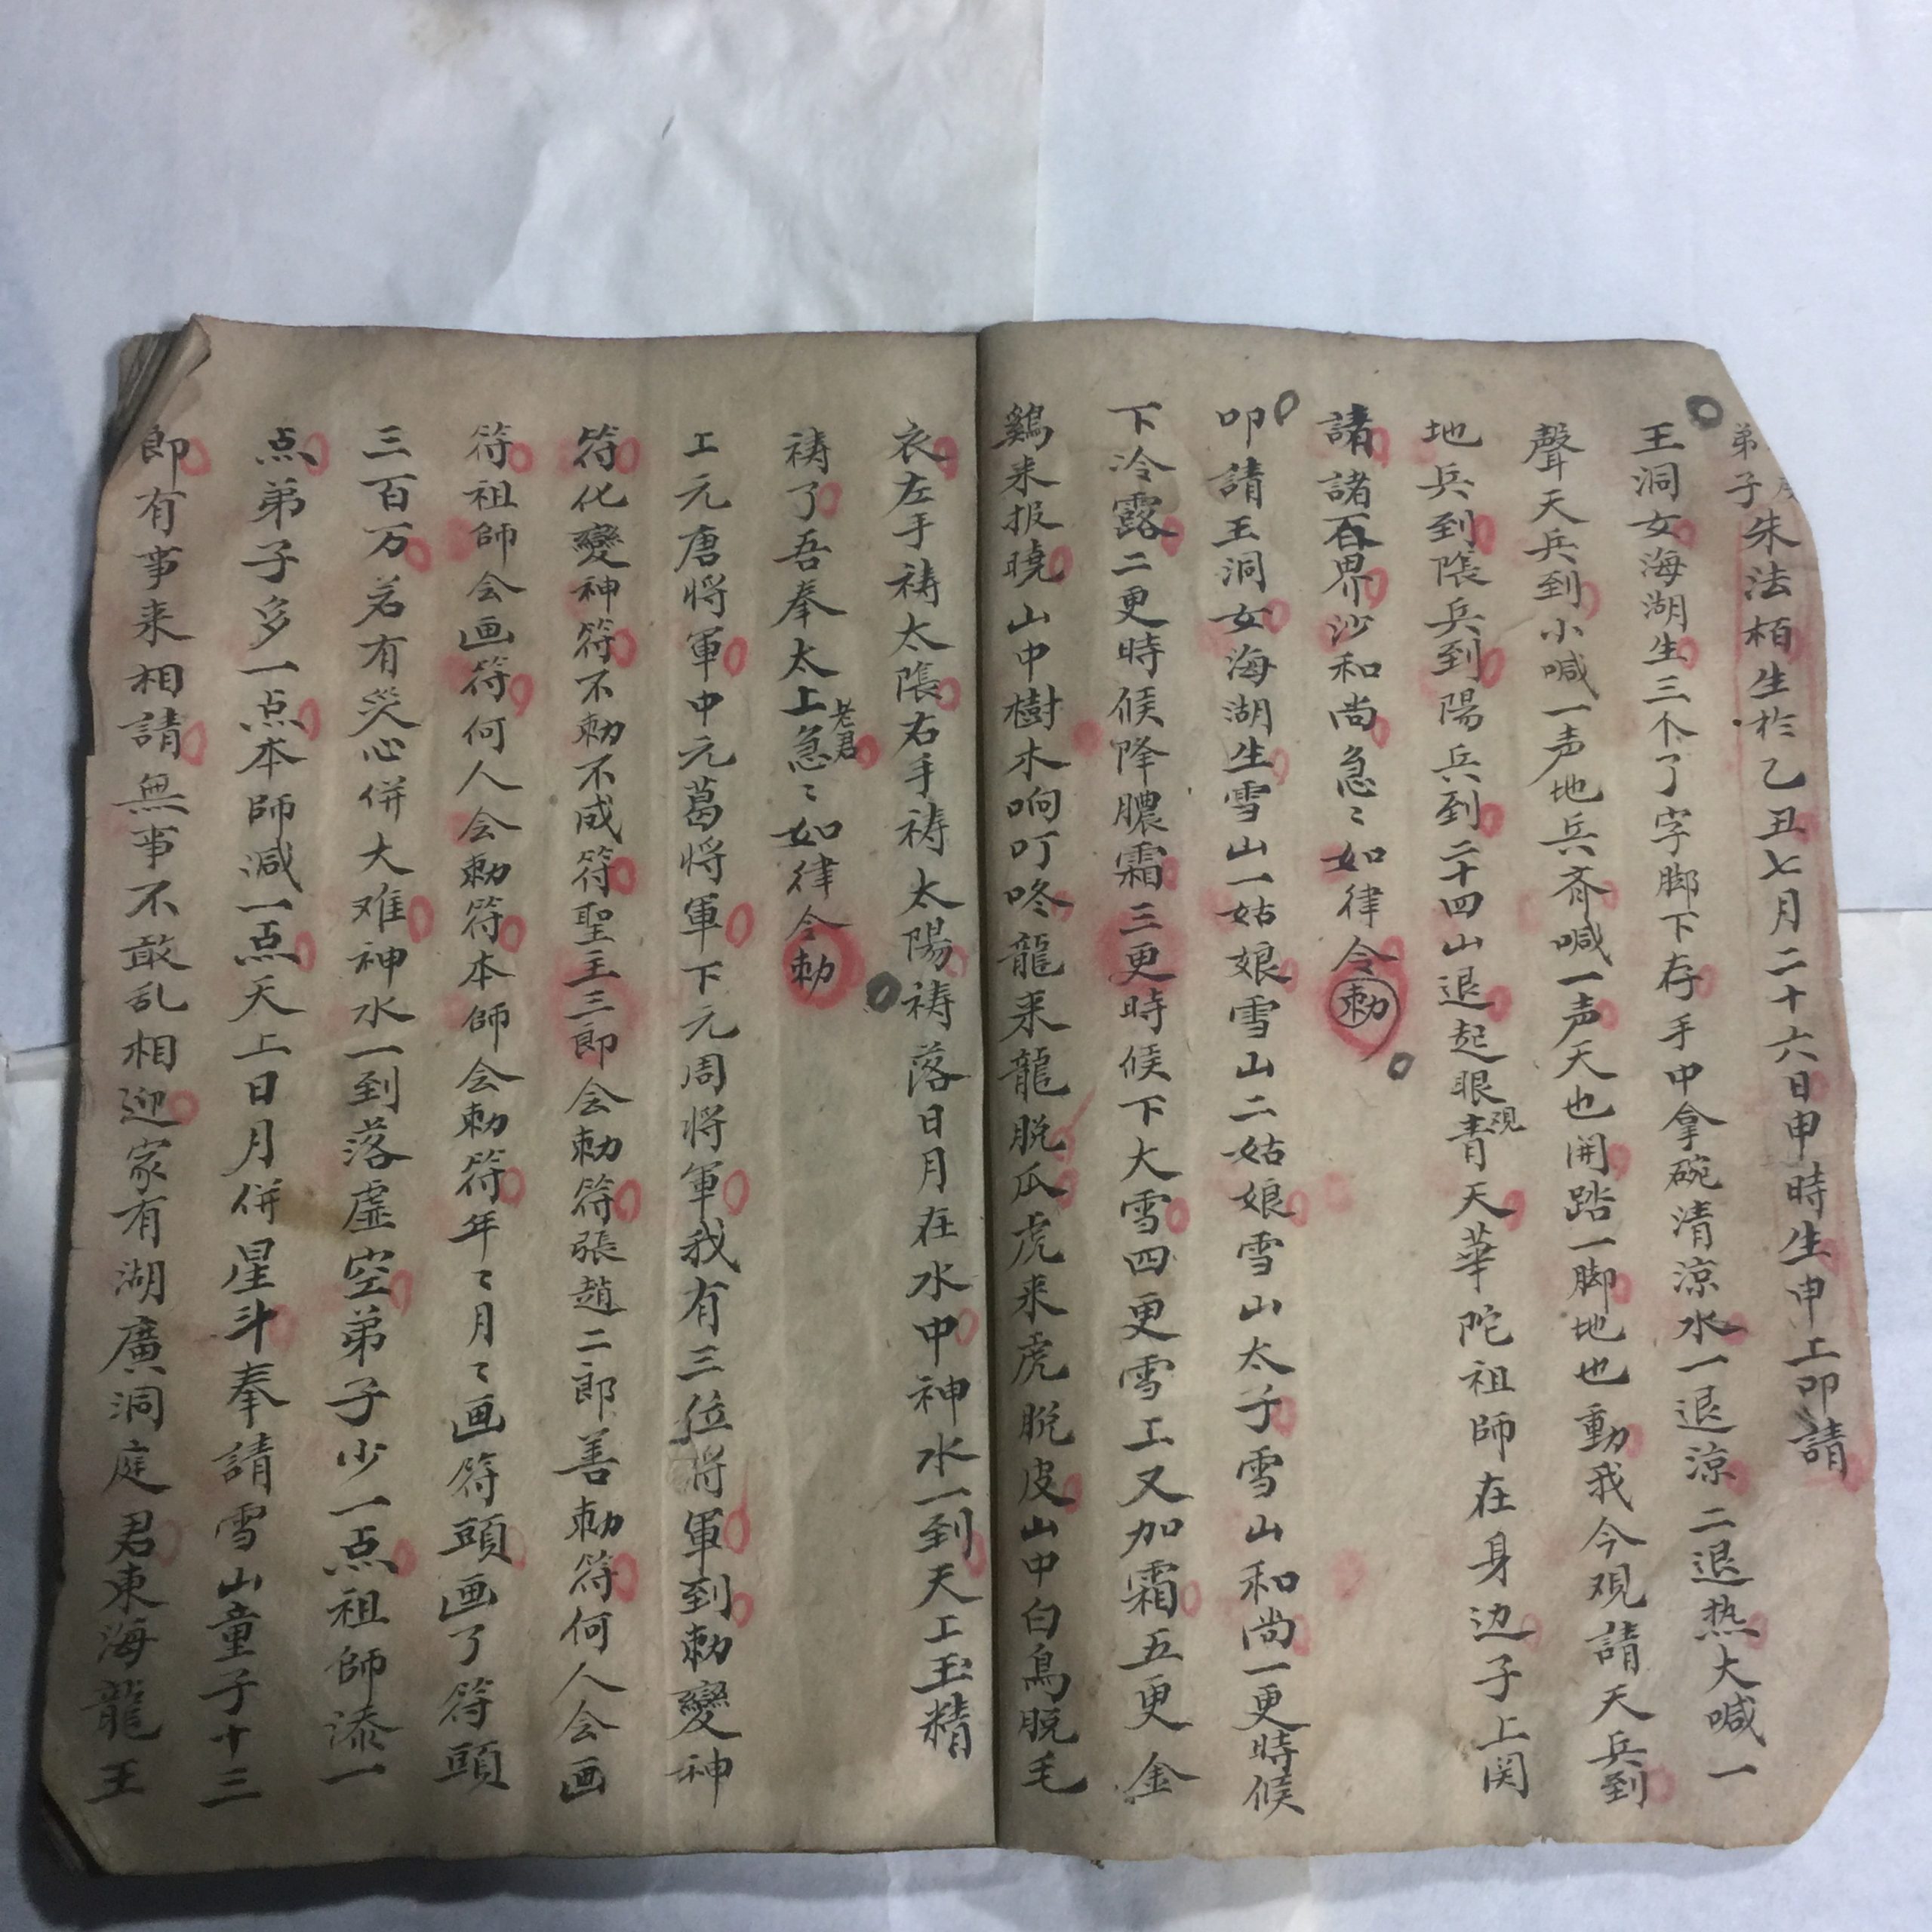 弟子朱法栢生於乙丑七月二十六日申時生申工叩請
王洞女海湖生三个了字脚下存手中拿碗清涼水一退涼二退热大喊一
聲天兵到小喊一声地兵齊喊一声天也開踏一脚地也動我今观請天兵到
地兵到陰兵到陽兵到二十四山退起眼青天華陀祖師在身边子上関
諸諸百界沙和尚急〻如律令勅
叩請王洞女海湖生雪山一姑娘雪山二姑娘雪山太子雪山和尚一更時候
下冷露二更時候降膿霜三更時候下大雪四更雪工又加霜五更金
鷄来报曉山中樹木响叮咚龍来龍脱瓜虎来虎脱皮山中白鳥脱毛
衣左手祷太陰右手祷太陽祷落日月在水中神水一到天工玉精
祷了吾奉太上老君急〻如律令勅
工元唐将軍中元葛将軍下元周将軍我有三位将軍到勅變神
符化變神符不勅不成符聖主三郎会勅符張趙二郎善勅符何人会画
符祖師会画符何人会勅符本師会勅符年〻月〻画符頭画了符頭
三百万若有災心併大难神水一到落虚空弟子少一点祖師添一
点弟子多一点本師減一点天上日月併星斗奉請雪山童子十三
郎有事来相請無事不敢乱相迎家有湖廣洞庭君東海龍王